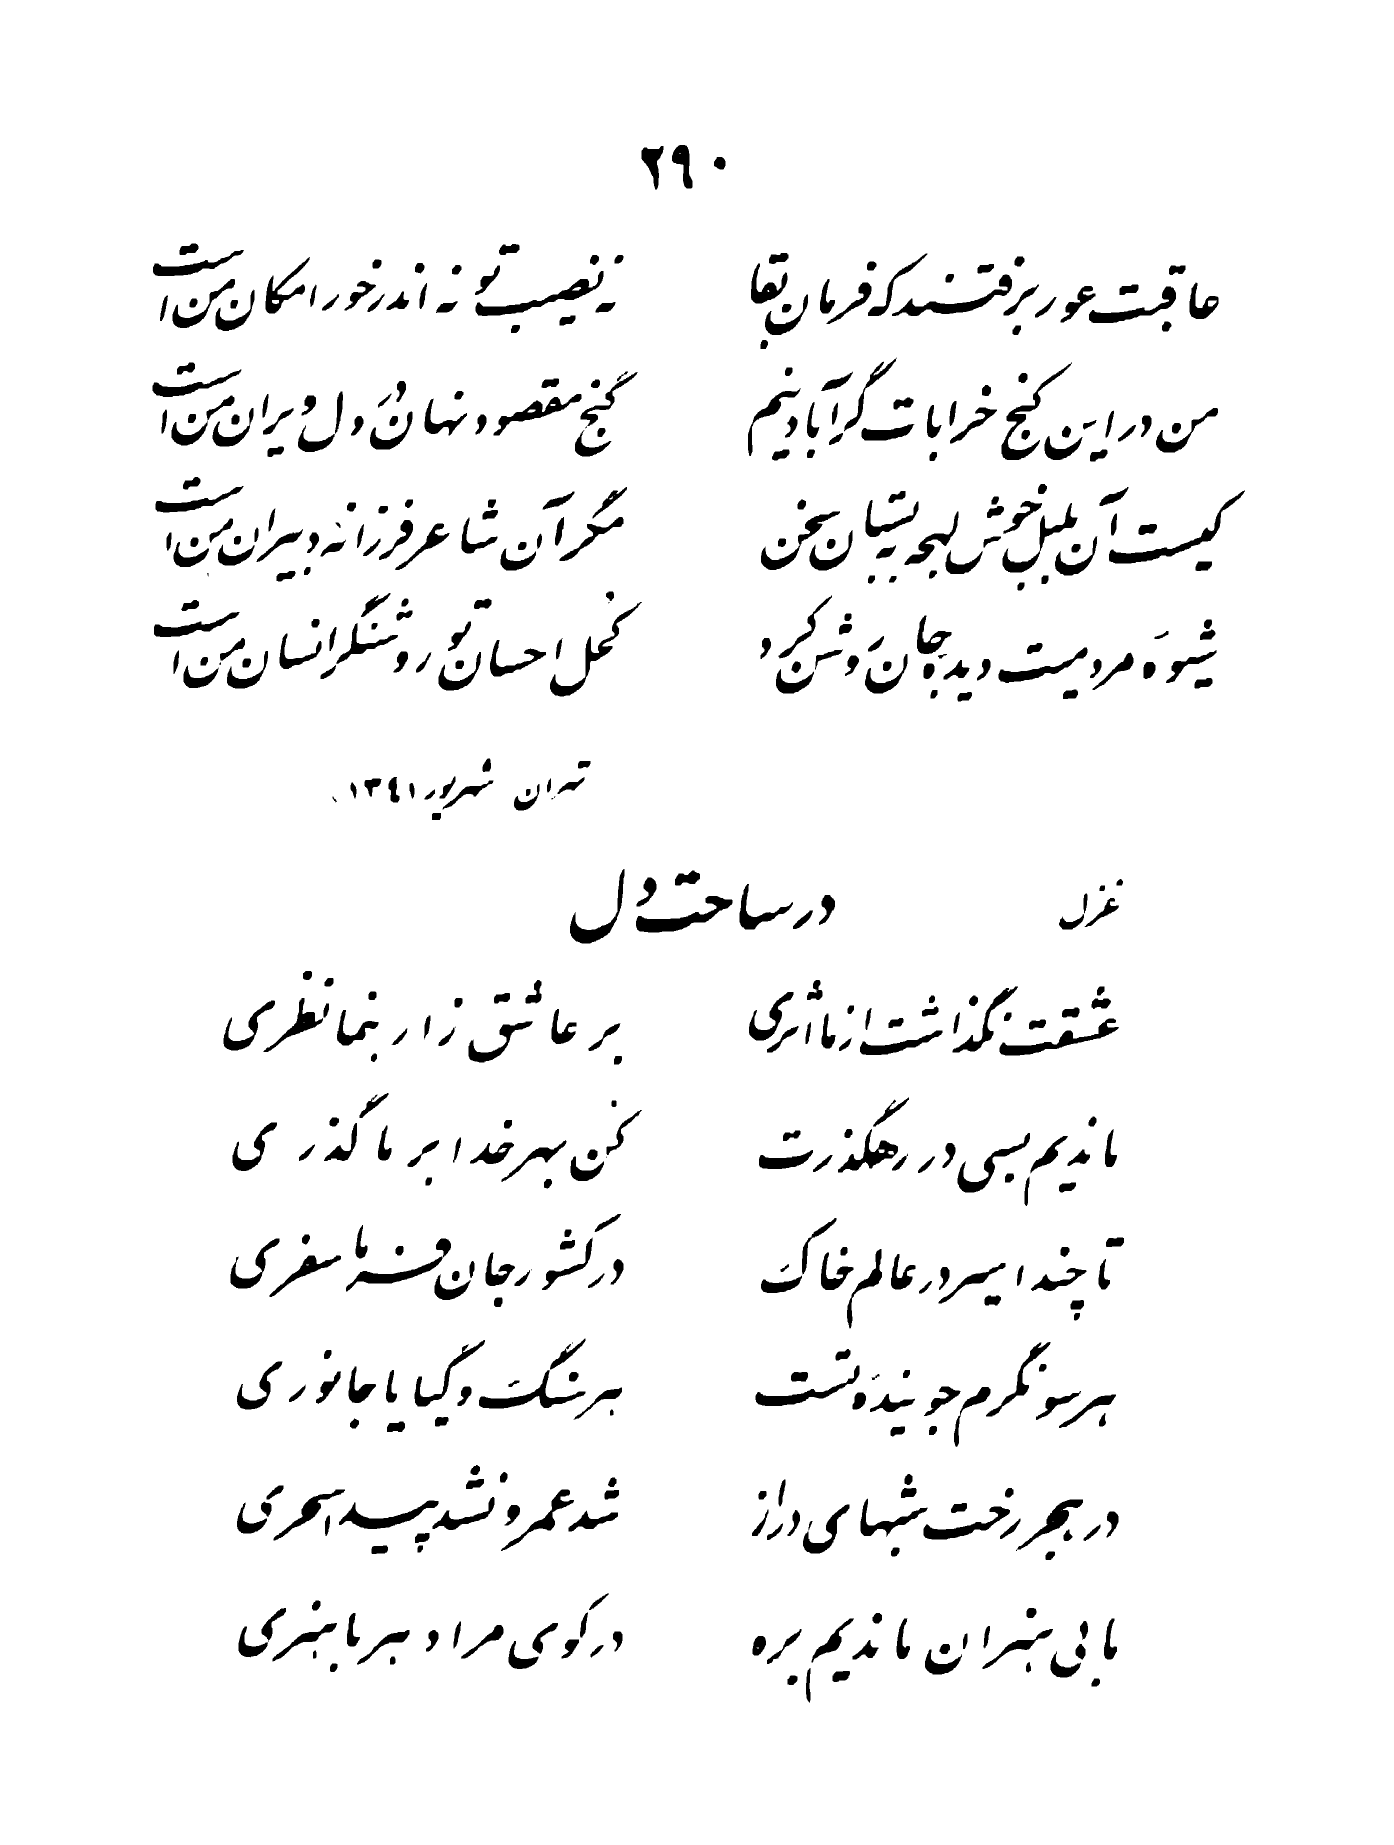 ۲۹۰
عاقبت عور برفتند که فرمان بقا نه نصیب تو نه اندرخور امکان من است
من در این کنج خرابات گرآبادینم گنج مقصود نهان در دل ویران من است
کیست آن بلبل خوش لهجه بستان سخن مگر آن شاعر فرزانه دبیران من است
شیوه مردمیت دیده جان روشن کرد کحل احسان تو روشنگر انسان من است
تهران شهریور ۱۳٤۱
غزل در ساحت دل
عشقت نگذاشت از ما اثری بر عاشق زار بنما نظری
ماندیم بسی در رهگذرت کن بهر خدا بر ما گذری
تا چند اسیر در عالم خاک در کشور جان فرما سفری
هر سو نگرم جوینده تست هر سنگ و گیا یا جانوری
در هجر رخت شبهای دراز شد عمر و نشد پیدا سحری
ما بی هنران ماندیم بره در کوی مراد هر با هنری